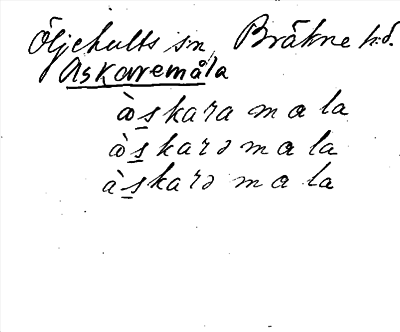 Öljehults sn, Bräkne hd.
Askaremåla
àskara mala
àskarə mala
àskarə mala